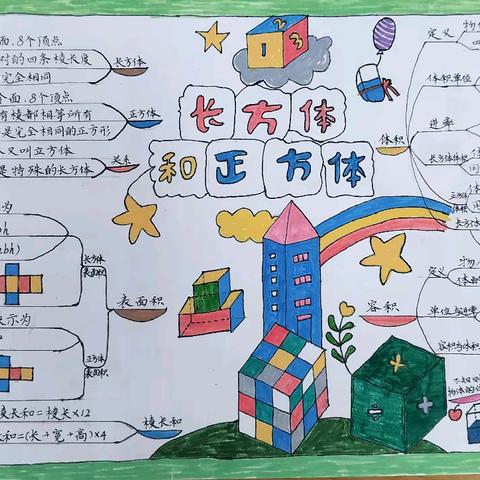 长方体
和正方体
1 2 3
面,8个顶点
对的四条棱长度
完全相同
长方体
个面,8个顶点
有棱都相等所有
是完全相同的正方形
正方体
又叫立方体
是特殊的长方体
关系
为
bh
2bh)
长方体
表面积
表示为
正方体
表面积
表面积
棱长和=棱长×12
长和=(长+宽+高)×4
棱长和
体积
定义
物体
体积单位
进率
长方体体积
正方体
体积
长方体
容积
定义
物体
体的
单位与进率
容积与体积
物体的体